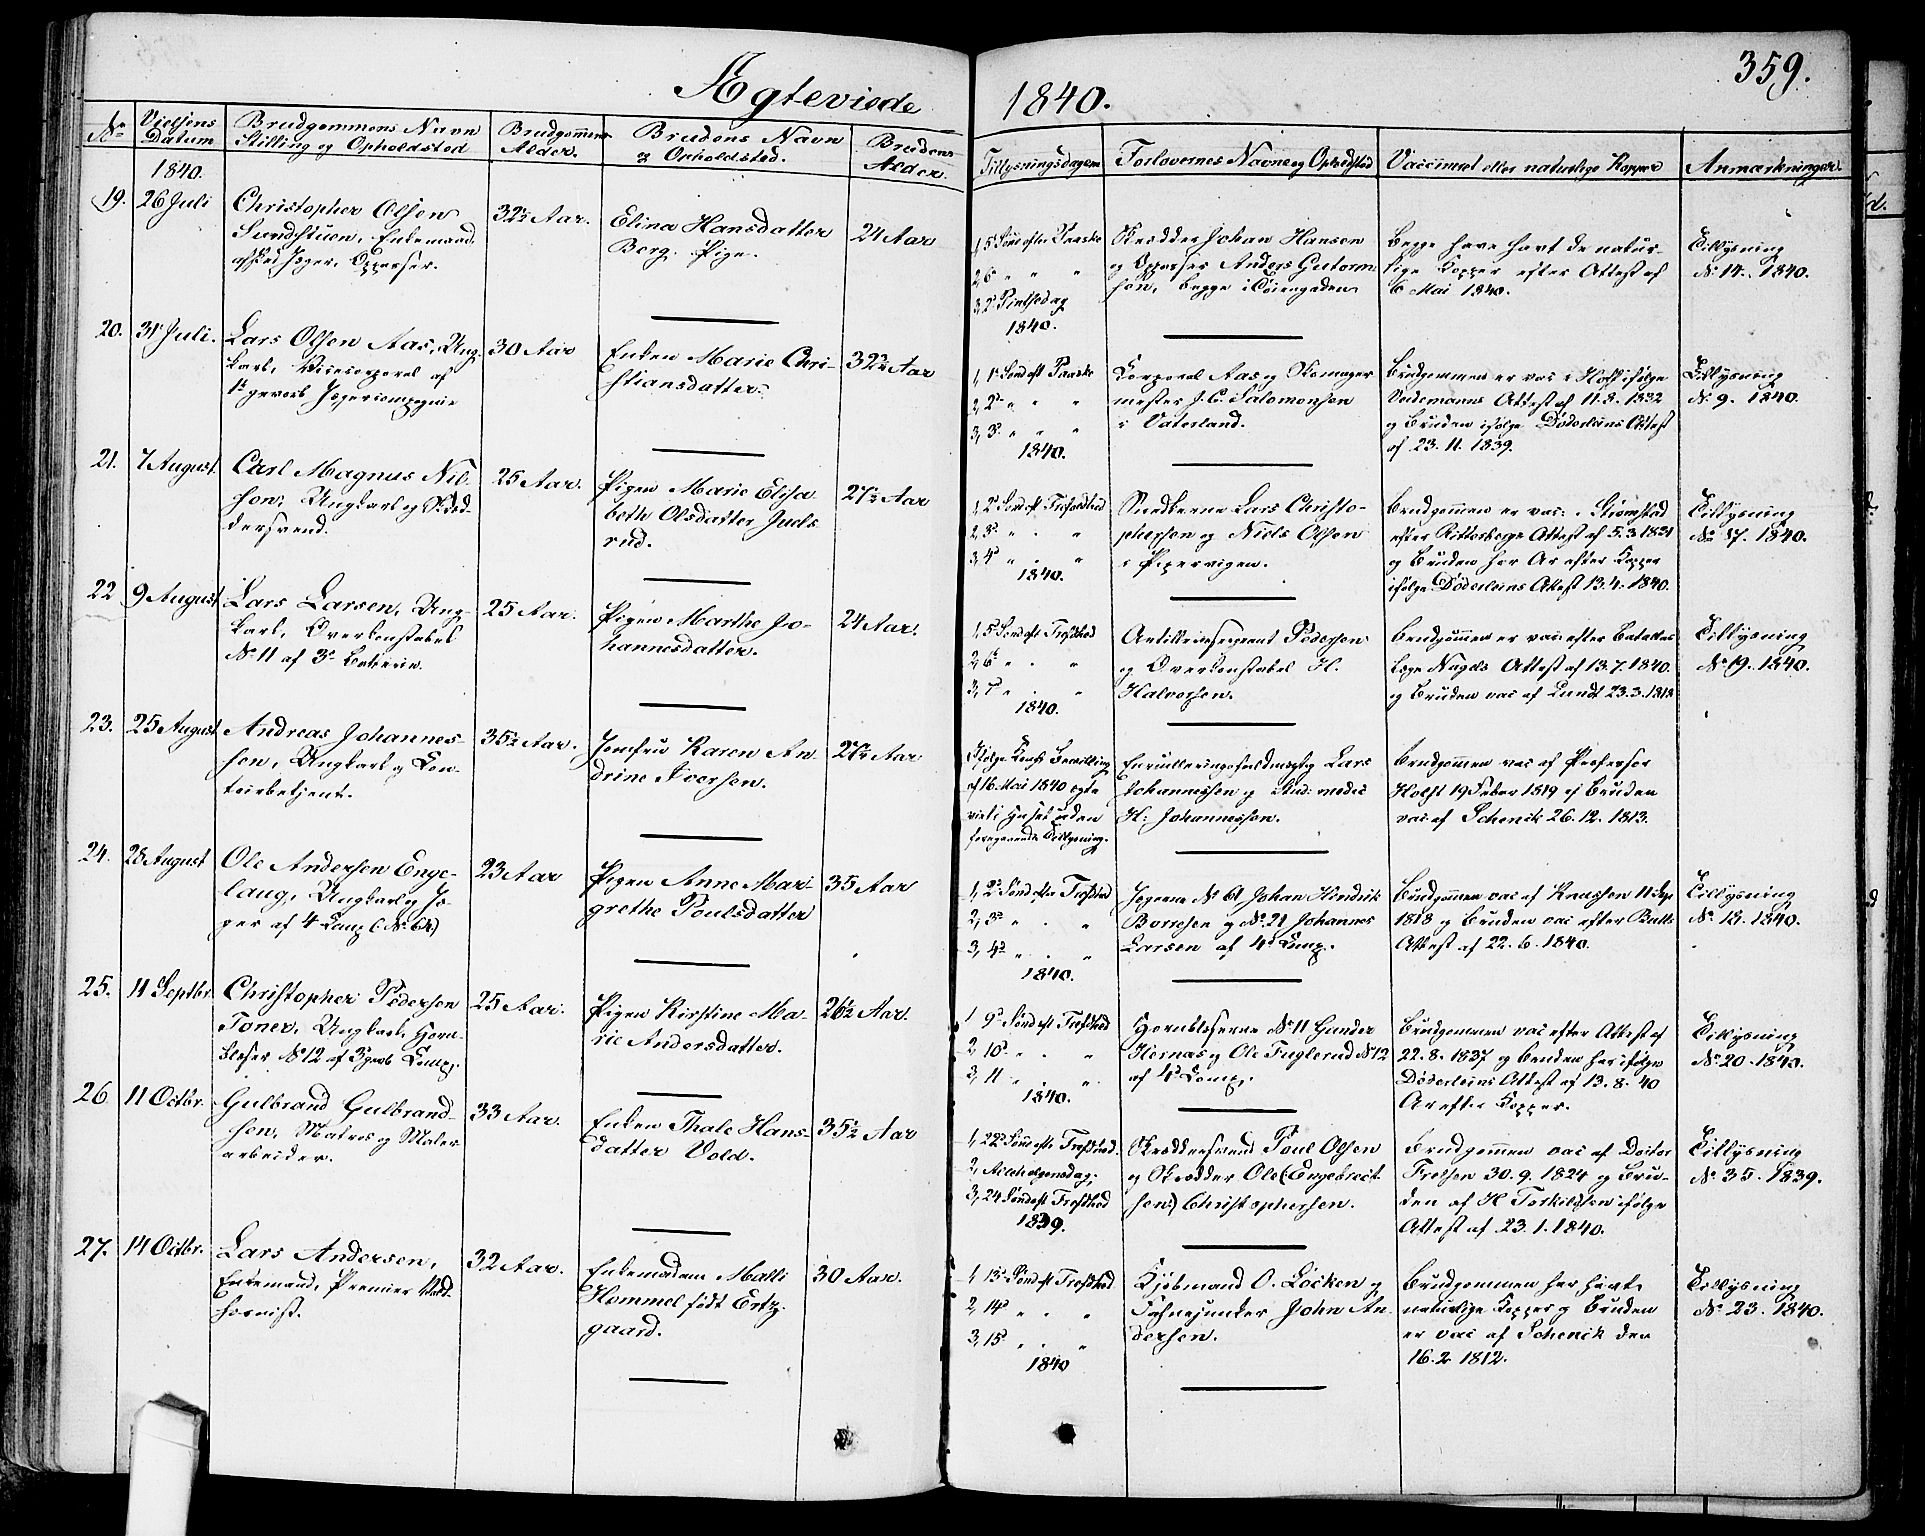 359.
Ægteviede
1840.
No
Vielsens Datum
Brudgommens Navn Stilling og Opholdsted
Brudgommens Alder.
Brudens Navn og Opholdsted.
Brudens Alder.
Tillysningsdagene
Forlovernes Navne og Opholdsted
Vaccineret eller naturlige Kopper
Anmærkninger.
1840.
19. 26 Juli
Christopher Olsen
Sundstuen, Enkemand
Jæger, Opperser.
32½ Aar.
Eline Hansdatter
Berg. Pige.
24 Aar
1, 5 Sønd efter Paaske
2, 6 " " "
3, 2 Pintsedag
1840.
Skrædder Johan Hansen
og Opperser Anders Gutorm-
sen, begge i
Begge have havt de natur-
lige Kopper efter Attest af
6 Mai 1840.
Tillysning
No 14. 1840.
20. 31 Juli.
Lars Olsen Aas, Ung-
karl, Vicecorporal af
1e gevorb Jægercompagnie
30 Aar
Enken Marie Chri-
stiansdatter
32¾ Aar
1, 1 Sønd eft Paaske
2, 2 " " "
3, 3 " " "
1840.
Corporal Aas og Skomager-
mester J. C. Salomonsen
i Vaterland.
Brudgommen er vac. i Hof ifølge
Attest af 11.8.1832
og Bruden ifølge Døderleins Attest
af 23.11.1839.
Tillysning
No 9. 1840.
21. 7 August
Carl Magnus Nil-
sen, Ungkarl og Skræd-
dersvend.
25 Aar.
Pigen Marie Elisa-
beth Olsdatter Juels-
rud.
27½ Aar
1, 2 Sønd eft Trefoldhed
2, 3 " " "
3, 4 " " "
1840.
Snedkerne Lars Christo-
phersen og Niels Olsen
i Pipervigen.
Brudgommen er vac. i Strømstad
efter Attest af 5.3.1831
og Bruden har Ar efter Kopper
ifølge Døderleins Attest 13.4.1840.
Tillysning
No 17. 1840.
22 9 August
Lars Larsen, Ung-
karl, Overkonstabel
No 11 af 3e Batterie.
25 Aar.
Pigen Marthe Jo-
hannesdatter.
24 Aar.
1, 5 Sønd eft Trefoldhed
2, 6 " " "
3, 7 " " "
1840.
Artilleriesergeant Pedersen
og Overkonstabel H.
Halvorsen.
Brudgommen er vac efter Batallons
Læge Nagels Attest af 13.7.1840.
og Bruden vac af Lundt 23.3.1818
Tillysning
No 19. 1840.
23. 25 August
Andreas Johannes-
sen, Ungkarl og Con-
toirbetjent.
35½ Aar.
Jomfru Karen An-
drine Iversen.
27¼ Aar
Ifølge Bevilling
af 16 Mai 1840 ægte
viet i Huset uden
foregaaende Tillysning.
Lars
Johannessen og Stud: medic
H. Johannessen.
Brudgommen vac af Professor
Holst 19 Feber 1819 og Bruden
vac af Schenik 26.12.1813.
24. 28 August
Ole Andersen Enge-
laug, Ungkarl og Jæ-
ger af 4 Comp (No 64)
23 Aar
Pigen Anne Mar-
grethe Poulsdatter
35 Aar
1, 2 Sønd efter Trefoldhed
2, 3 " " "
3, 4 " " "
1840.
Jægerne No 61 Johan Hindrik
Borresen og No 21 Johannes
Larsen af 4d Comp.
Brudgommen vac af Knussen 11 Sep
1818 og Bruden vac efter Bulls
Attest af 22.6.1840.
Tillysning
No 18. 1840.
25. 11 Septbr.
Christopher Pedersen
Toner, Ungkarl, Horn-
blæser No 12 af 3 gevb Comp.
25 Aar.
Pigen Kirstine Ma-
rie Andersdatter.
26½ Aar.
1 9 Sønd eft Trefoldhed
2, 10 " " "
3, 11 " " "
1840.
Hornblæserne No 11 Gunder
Hernæs og Ole Fuglerud No 12
af 4 Comp.
Brudgommen vac efter Attest af
22.8.1837 og Bruden har ifølge
Døderleins Attest af 13.8.40
Ar efter Kopper.
Tillysning
No 20. 1840.
26 11 Octbr.
Gulbrand Gulbrand-
sen, Matros og Maler-
arbeider.
33 Aar.
Enken Thale Hans-
datter Vold.
35½ Aar
1, 22 Sønd efter Trefoldhed.
2, Allehelgensdag,
3, 24 Sønd eft Trefoldhed
1839.
Skræddersvend Poul Olsen
og Skrædder Ole (Engebrect-
sen) Christophersen.
Brudgommen vac af Doctor
Frelsen 30.9.1824 og Bru-
den af H Torkildsen ifølge
Attest af 23.1.1840.
Tillysning
No 35. 1839.
27. 14 Octbr.
Lars Andersen,
Enkemand, Premier Vald-
hornist.
32 Aar.
Enkemadam Malli
Hommel født Ertz-
gaard.
30 Aar.
1, 13 Sønd eft Trefoldhed
2, 14 " " "
3, 15 " " "
1840
Kjøbmand O. Løcken og
Fahnejunker John An-
dersen.
Brudgommen har havt
naturlige Kopper og Bruden
er vac af Schenik den
16.2.1812.
Tillysning
No 23. 1840.